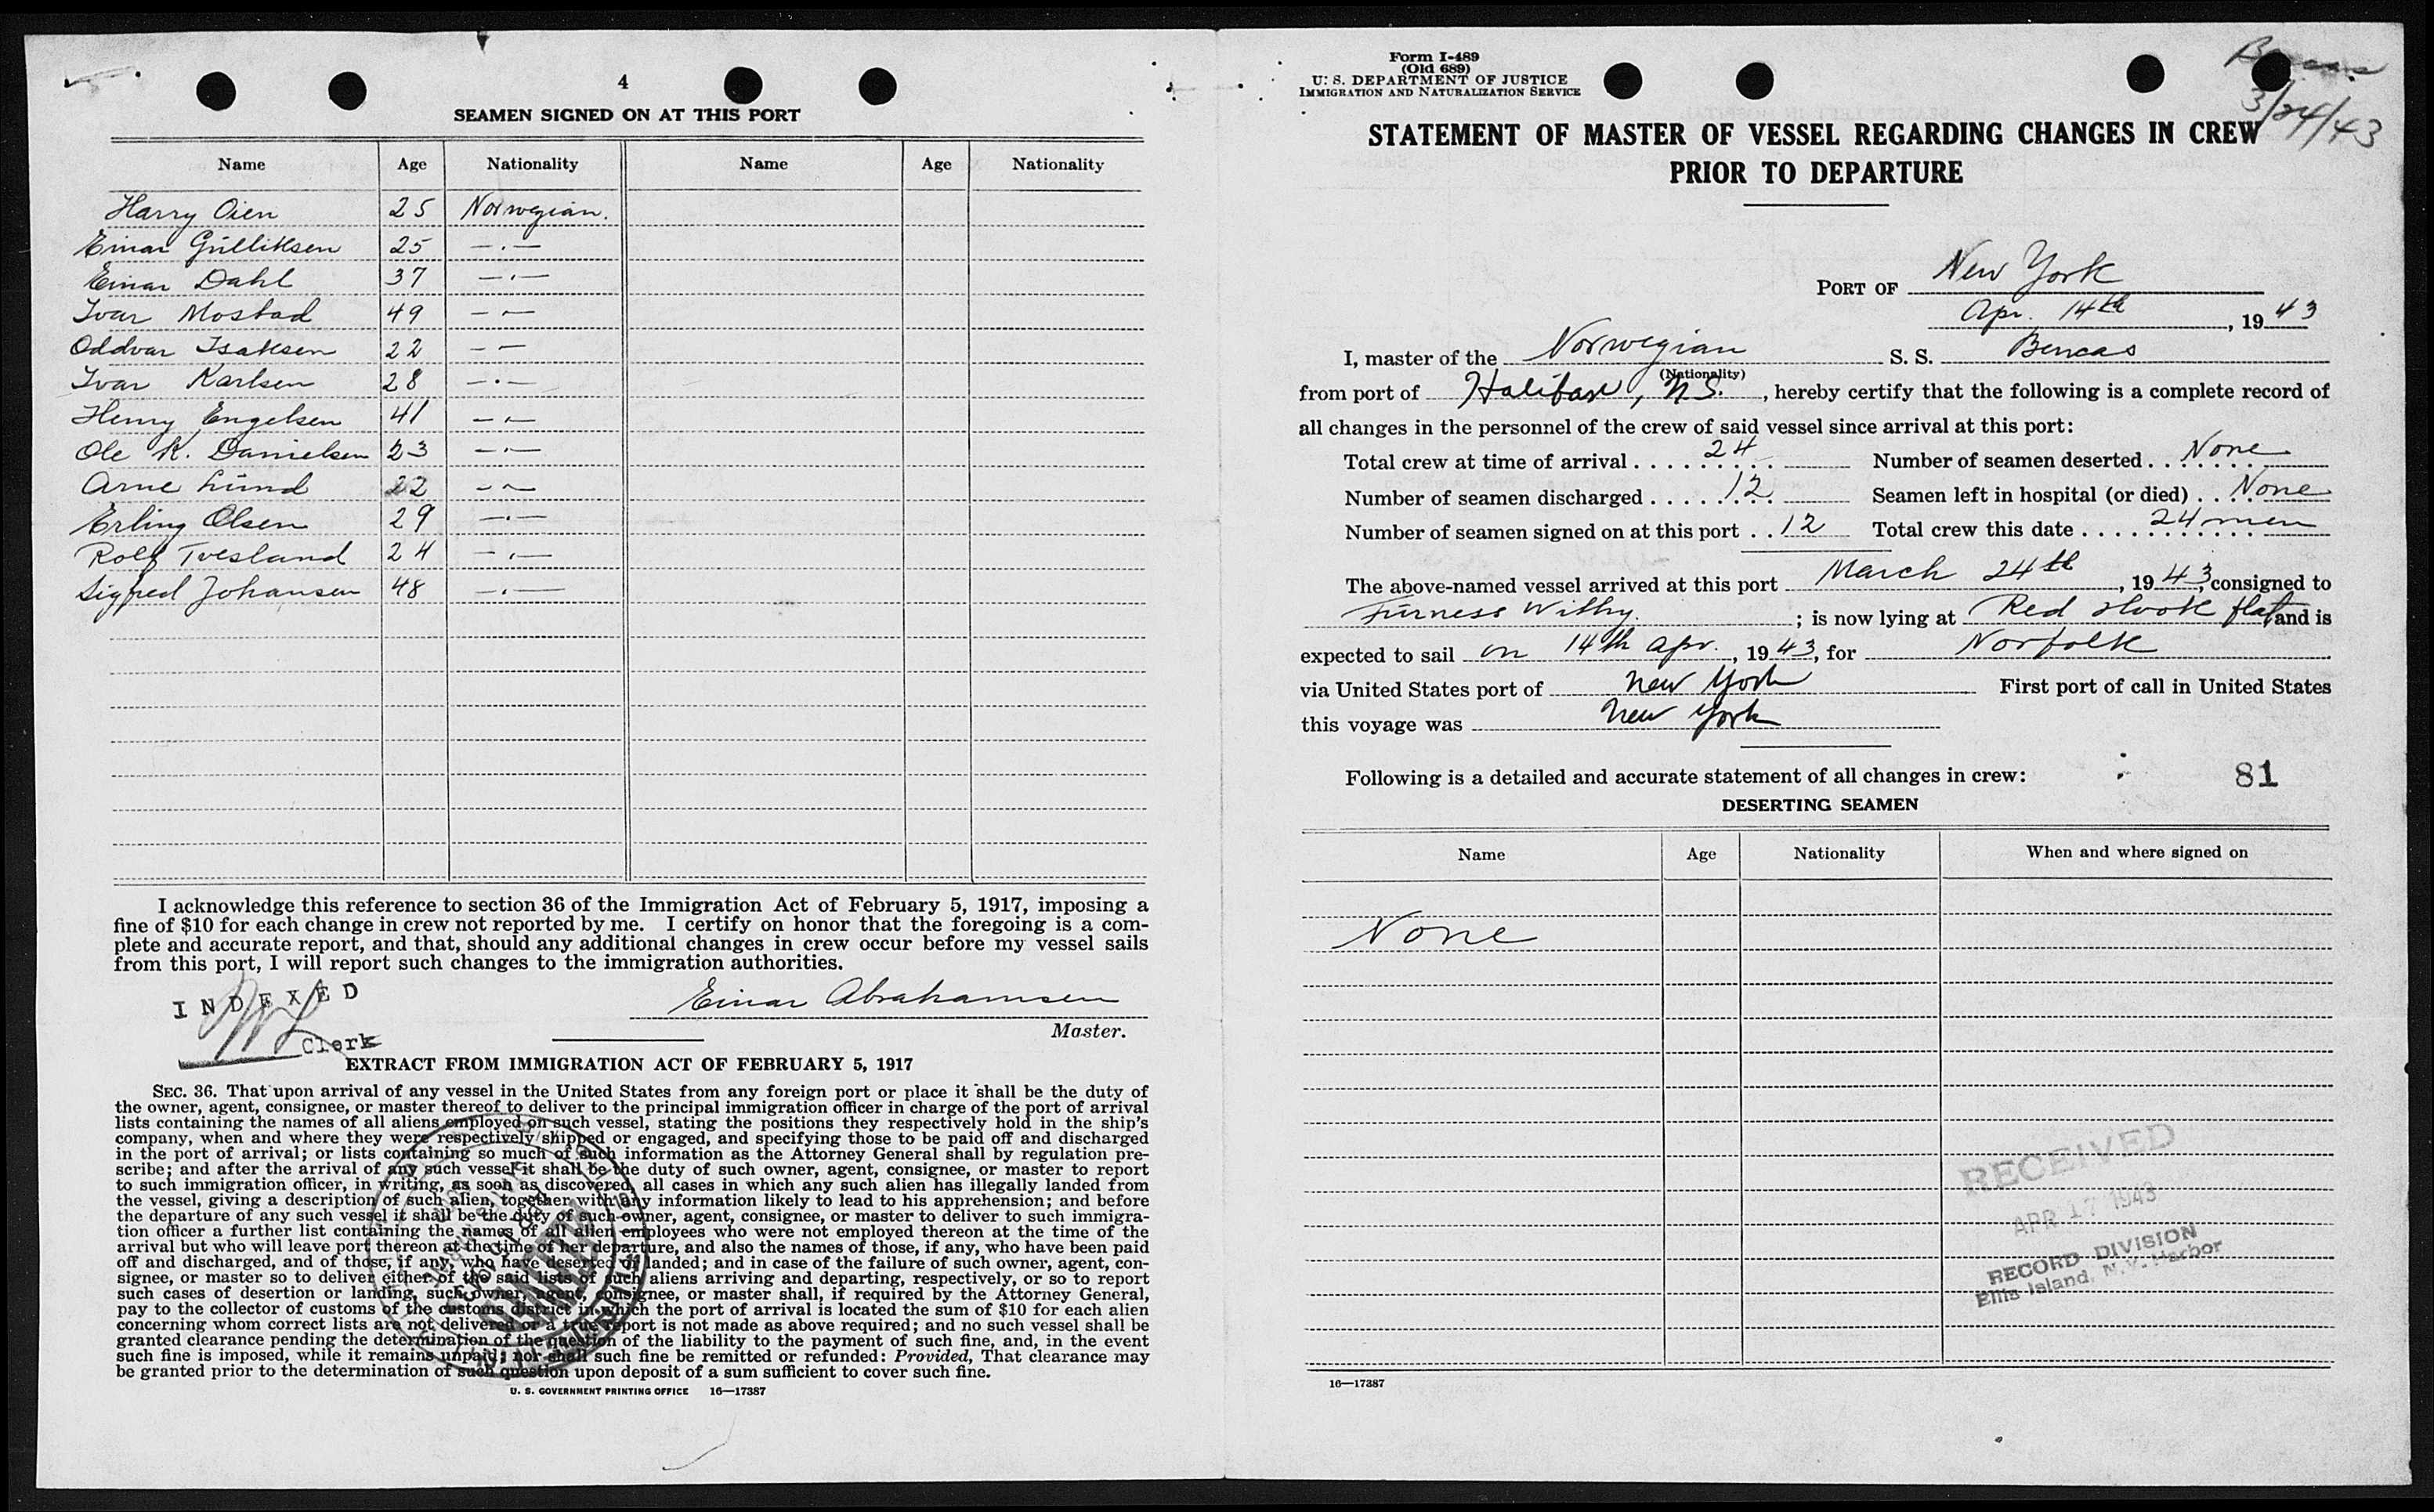 4
SEAMEN SIGNED ON AT THIS PORT
Name Age Nationality Name Age Nationality
Harry Oien 25 Norwegian.
Einar Gulliksen 25 — . —
Einar Dahl 37 — . —
Ivar Mostad 49 — —
Oddvar Isaksen 22 — —
Ivar Karlsen 28 — . —
Henry Engelsen 41 — . —
Ole K. Danielsen 23 — . —
Arne Lund 22 — —
Erling Olsen 29 — . —
Rolf Tvesland 24 — . —
Sigfred Johansen 48 — . —
I acknowledge this reference to section 36 of the Immigration Act of February 5, 1917, imposing a
fine of $10 for each change in crew not reported by me. I certify on honor that the foregoing is a com-
plete and accurate report, and that, should any additional changes in crew occur before my vessel sails
from this port, I will report such changes to the immigration authorities.
INDEXED
Clerk
Einar Abrahamsen
Master.
EXTRACT FROM IMMIGRATION ACT OF FEBRUARY 5, 1917
SEC. 36. That upon arrival of any vessel in the United States from any foreign port or place it shall be the duty of
the owner, agent, consignee, or master thereof to deliver to the principal immigration officer in charge of the port of arrival
lists containing the names of all aliens employed on such vessel, stating the positions they respectively hold in the ship's
company, when and where they were respectively shipped or engaged, and specifying those to be paid off and discharged
in the port of arrival; or lists containing so much of such information as the Attorney General shall by regulation pre-
scribe; and after the arrival of any such vessel it shall be the duty of such owner, agent, consignee, or master to report
to such immigration officer, in writing, as soon as discovered, all cases in which any such alien has illegally landed from
the vessel, giving a description of such alien, together with any information likely to lead to his apprehension; and before
the departure of any such vessel it shall be the duty of such owner, agent, consignee, or master to deliver to such immigra-
tion officer a further list containing the names of all alien employees who were not employed thereon at the time of the
arrival but who will leave port thereon at the time of her departure, and also the names of those, if any, who have been paid
off and discharged, and of those, if any, who have deserted or landed; and in case of the failure of such owner, agent, con-
signee, or master so to deliver either of the said lists of such aliens arriving and departing, respectively, or so to report
such cases of desertion or landing, such owner, agent, consignee, or master shall, if required by the Attorney General,
pay to the collector of customs of the customs district in which the port of arrival is located the sum of $10 for each alien
concerning whom correct lists are not delivered or a true report is not made as above required; and no such vessel shall be
granted clearance pending the determination of the question of the liability to the payment of such fine, and, in the event
such fine is imposed, while it remains unpaid; nor shall such fine be remitted or refunded: Provided, That clearance may
be granted prior to the determination of such question upon deposit of a sum sufficient to cover such fine.
U. S. GOVERNMENT PRINTING OFFICE 16—17387
Form I-489
(Old 689)
U. S. DEPARTMENT OF JUSTICE
IMMIGRATION AND NATURALIZATION SERVICE
3/24/43
STATEMENT OF MASTER OF VESSEL REGARDING CHANGES IN CREW
PRIOR TO DEPARTURE
PORT OF New York
Apr. 14th, 1943
I, master of the Norwegian S. S. Bencas
(Nationality)
from port of Halifax, N.S., hereby certify that the following is a complete record of
all changes in the personnel of the crew of said vessel since arrival at this port:
Total crew at time of arrival 24 Number of seamen deserted None
Number of seamen discharged 12 Seamen left in hospital (or died) None
Number of seamen signed on at this port 12 Total crew this date 24 men
The above-named vessel arrived at this port March 24th, 1943, consigned to
Furness Withy. ; is now lying at Red Hook flat and is
expected to sail on 14th Apr., 1943, for Norfolk
via United States port of New York First port of call in United States
this voyage was New York
Following is a detailed and accurate statement of all changes in crew:
81
DESERTING SEAMEN
Name Age Nationality When and where signed on
None
RECEIVED
APR 17 1943
RECORD DIVISION
Ellis Island, N.Y. Harbor
16—17387